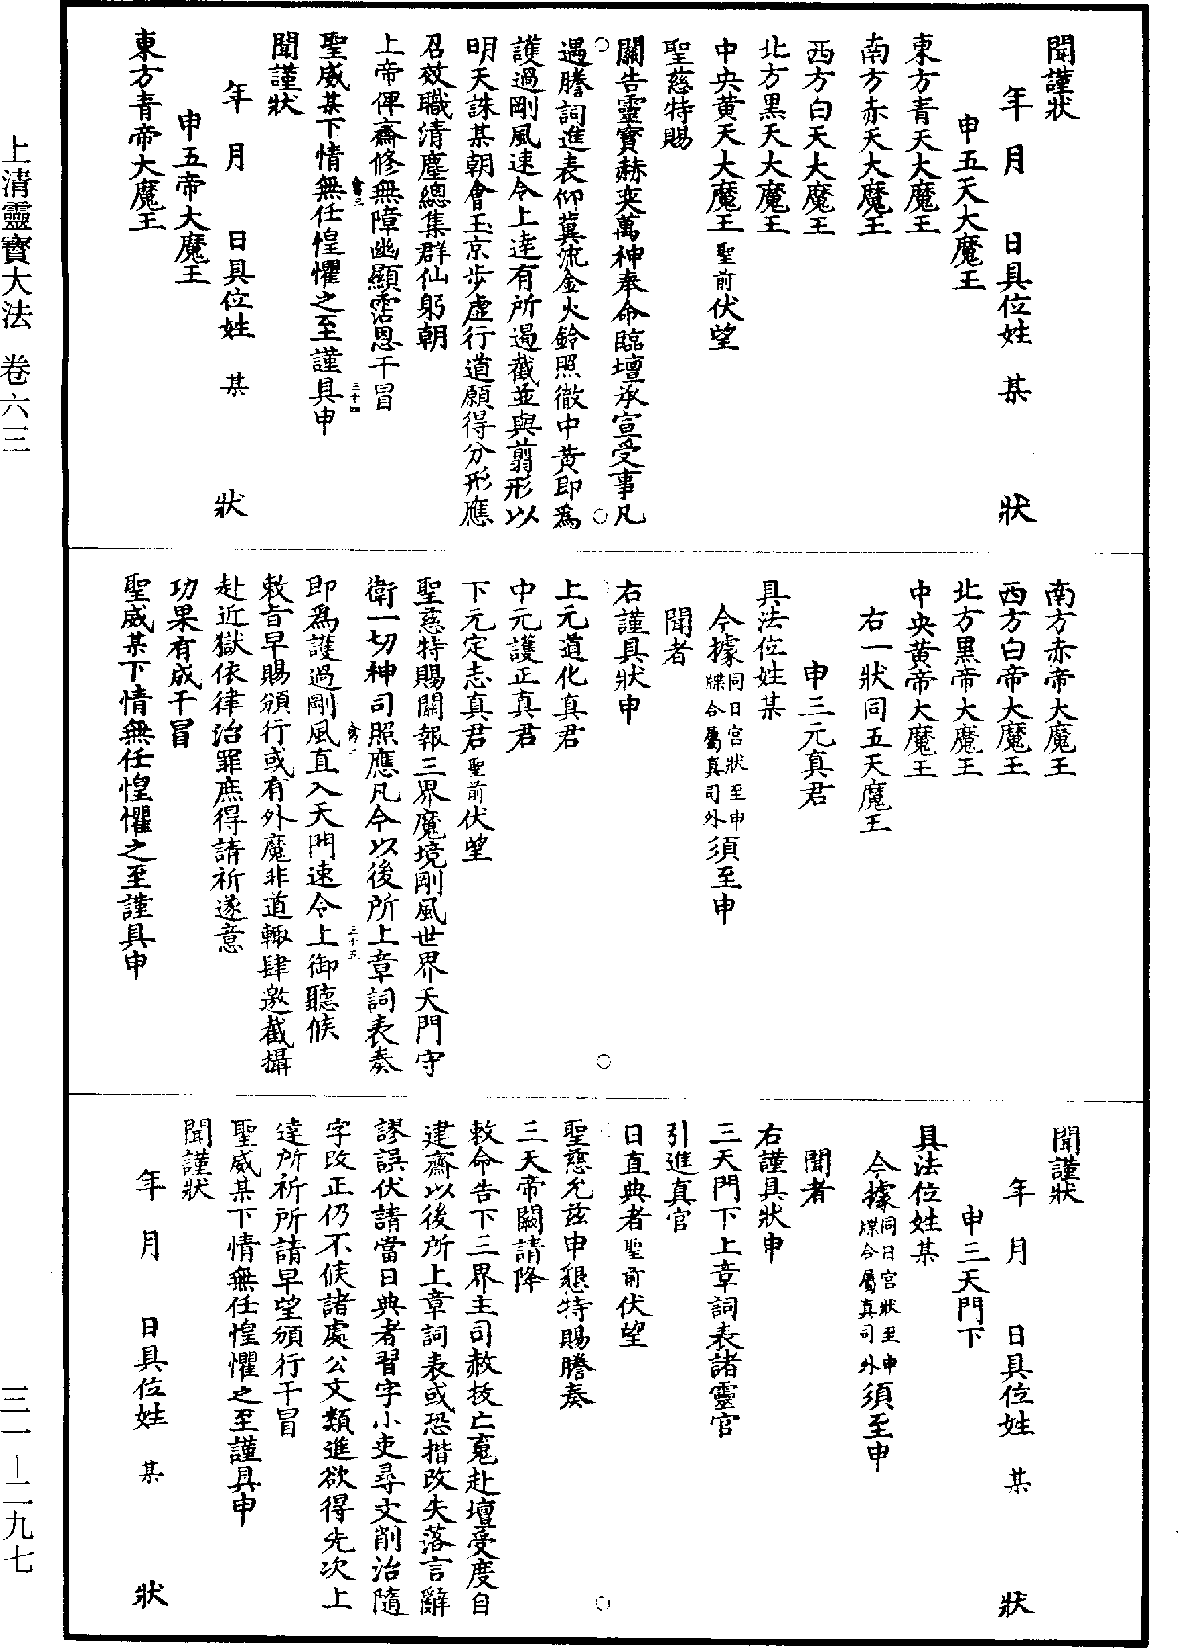 聞謹狀
年　月　　日具位姓　某　　　狀
申五天大魔王
東方青天大魔王
南方赤天大魔王
西方白天大魔王
北方黑天大魔王
中央黃天大魔王聖前伏望
聖慈特賜
關告靈寶赫奕萬神奉命臨壇承宣受事凡
遇謄詞進表仰冀流金火鈴照徹中黃即為
護過剛風速令上達有所遏截並與翦形以
明天誅某朝會玉京步虛行道願得分形應
召效職清塵總集群仙躬朝
上帝俾齋修無障幽顯霑恩干冒
三十四
聖威某下情無任惶懼之至謹具申
聞謹狀
年　月　　日具位姓　某　　　狀
申五帝大魔王
東方青帝大魔王
南方赤帝大魔王
西方白帝大魔王
北方黑帝大魔王
中央黃帝大魔王
右一狀同五天魔王
申三元真君
具法位姓某
今據同日宮狀至申牒合屬真司外須至申
聞者
右謹具狀申
上元道化真君
中元護正真君
下元定志真君聖前伏望
聖慈特賜關報三界魔境剛風世界天門守
衛一切神司照應凡今以後所上章詞表奏
三十五
即為護過剛風直入天門速令上御聽候
敕旨早賜頒行或有外魔非道輙肆邀截攝
赴近獄依律治罪庶得請祈遂意
功果有成干冒
聖威某下情無任惶懼之至謹具申
聞謹狀
年　月　　日具位姓　某　　　狀
申三天門下
具法位姓某
今據同日宮狀至申牒合屬真司外須至申
聞者
右謹具狀申
三天門下上章詞表諸靈官
引進真官
日直典者聖前伏望
聖慈允茲申懇特賜謄奏
三天帝闕請降
敕命告下三界主司赦拔亡魂赴壇受度自
建齋以後所上章詞表或恐揩改失落言辭
謬誤伏請當日典者習字小吏尋文削治隨
字改正仍不候諸處公文類進欲得先次上
達所祈所請早望頒行干冒
聖威某下情無任惶懼之至謹具申
聞謹狀
年　月　　日具位姓　某　　　狀
上清靈寶大法　卷六三
三一－二九七